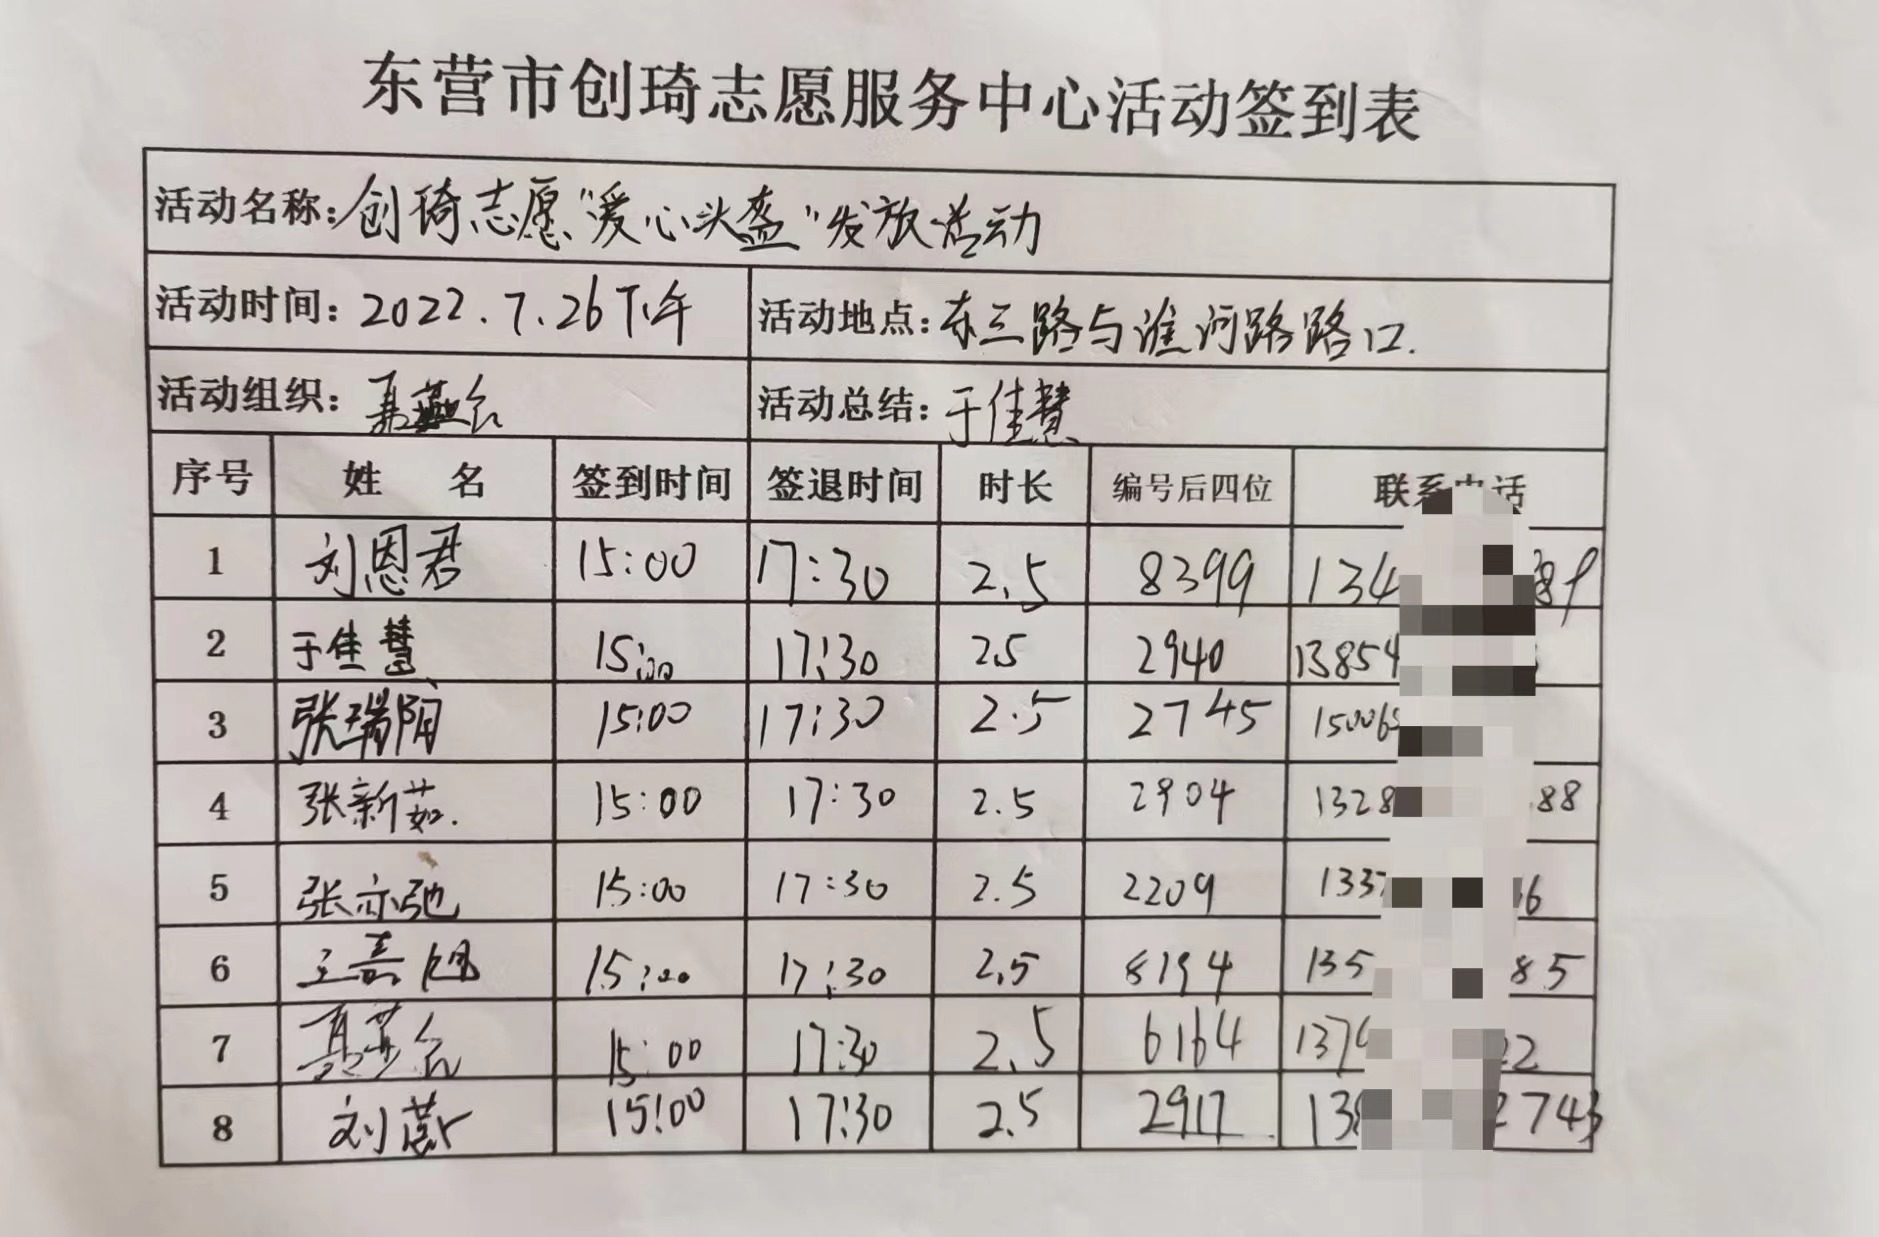 东营市创琦志愿服务中心活动签到表
活动名称：创琦志愿"爱心头盔"发放活动
活动时间：2022.7.26下午 活动地点：东三路与淮河路路口.
活动组织： 活动总结：于佳慧
序号 姓 名 签到时间 签退时间 时长 编号后四位 联系电话
1 刘恩君 15:00 17:30 2.5 8399 134 89
2 于佳慧 15:00 17:30 2.5 2940 13854
3 张瑞阳 15:00 17:30 2.5 2745 15006
4 张新茹. 15:00 17:30 2.5 2904 1328 88
5 张亦弛 15:00 17:30 2.5 2209 133 6
6 王嘉 15:00 17:30 2.5 8194 135 85
7 15:00 17:30 2.5 6164 137 22
8 刘 15:00 17:30 2.5 2917 13 2743